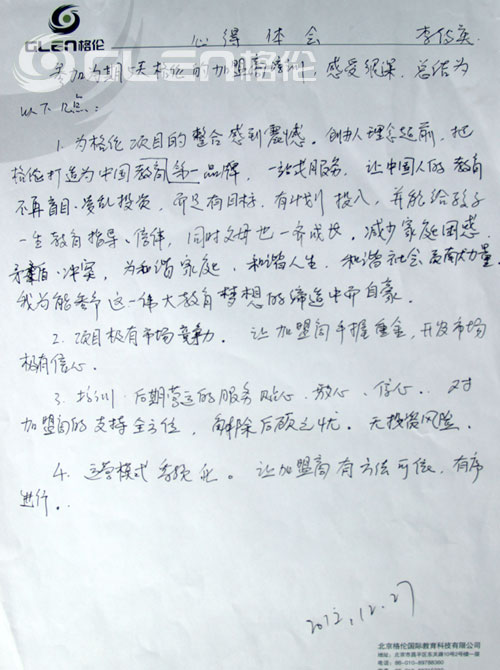 GLEN格伦
心得体会 李传英
参加为期一天格伦的加盟商培训，感受很深，总结为
以下几点：
1. 为格伦项目的整合感到震憾。创办人理念超前，把
格伦打造为中国教育第一品牌，一站式服务，让中国人的教育
不再盲目、凌乱投资，而是有目标，有计划投入，并能给孩子
一生教育指导、陪伴，同时父母也一齐成长，减少家庭困惑
矛盾、冲突，为和谐家庭、和谐人生，和谐社会贡献力量。
我为能参与这一伟大教育梦想的缔造中而自豪。
2. 项目极有市场竞争力。让加盟商手握重金，开发市场
极有信心。
3. 培训、后期营运的服务贴心、放心、信心。对
加盟商的支持全方位，解除后顾之忧。无投资风险。
4. 运营模式系统化。让加盟商有方法可依，有序
进行。
2012.12.27
北京格伦国际教育科技有限公司
地址：北京市昌平区东关路1号院
电话：86-010-89788360